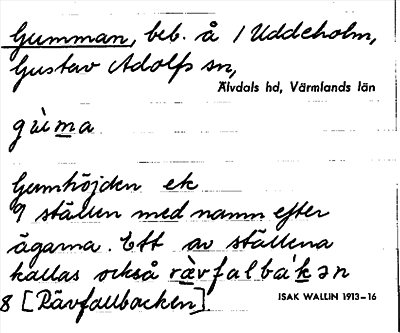 Gumman, beb. å / Uddeholm,
Gustav Adolfs sn,
Älvdals hd, Värmlands län
gùma
Gumhöjden ek
9 ställen med namn efter
ägarna. Ett av ställena
kallas också rävfalbákən
8 [Rävfallbacken]
ISAK WALLIN 1913-16